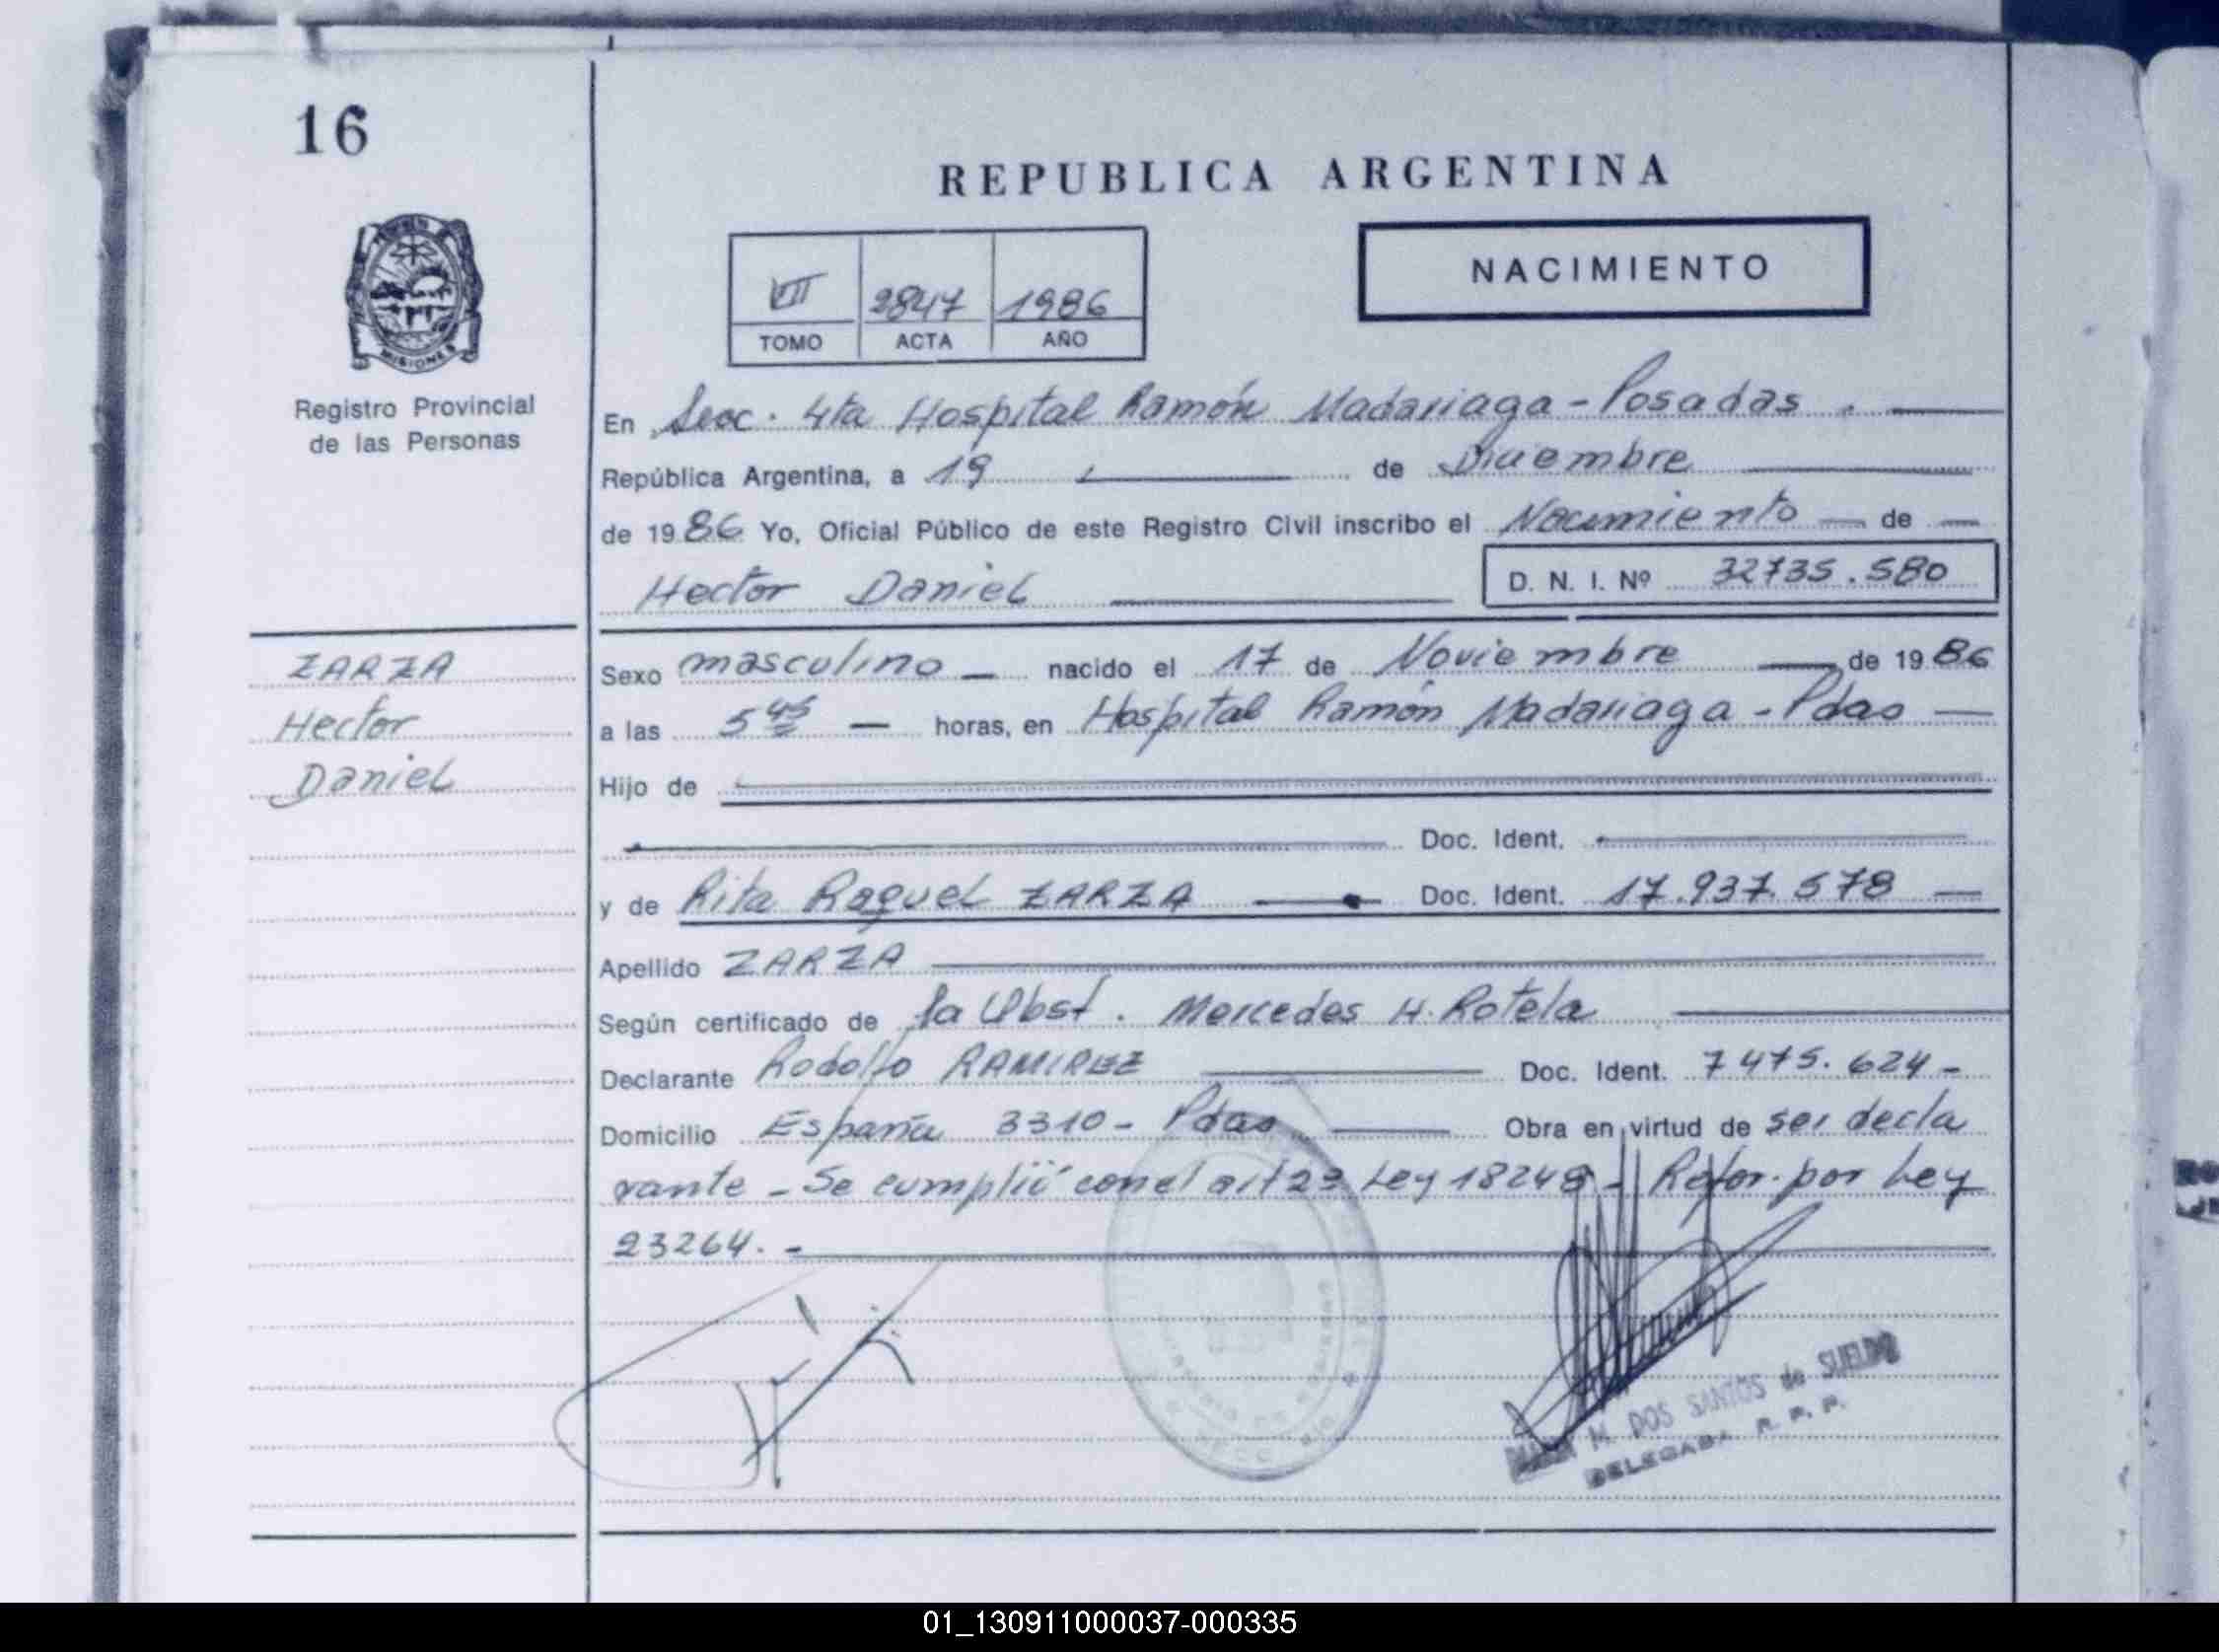 16
REPUBLICA ARGENTINA
MISIONES
Registro Provincial
de las Personas
VII 2847 1986
TOMO ACTA AÑO
NACIMIENTO
En Secc. 4ta Hospital Ramón Madariaga - Posadas.
República Argentina, a 19 de Diciembre
de 1986 Yo, Oficial Público de este Registro Civil inscribo el Nacimiento de
Hector Daniel D. N. I. Nº 32735.580
ZARZA
Hector
Daniel
Sexo masculino nacido el 17 de Noviembre de 1986
a las 5 45 horas, en Hospital Ramón Madariaga - Pdas
Hijo de
Doc. Ident.
y de Rita Raquel ZARZA Doc. Ident. 17.937.578
Apellido ZARZA
Según certificado de la Obst. Mercedes H. Rotela
Declarante Rodolfo RAMIREZ Doc. Ident. 7475.624 -
Domicilio España 3310 - Pdas Obra en virtud de ser decla
rante - Se cumplió con el art 23 Ley 18248 - Refor. por Ley
23264. -
M. DOS SANTOS de SUELDO
DELEGADA R. P. P.
01_130911000037-000335